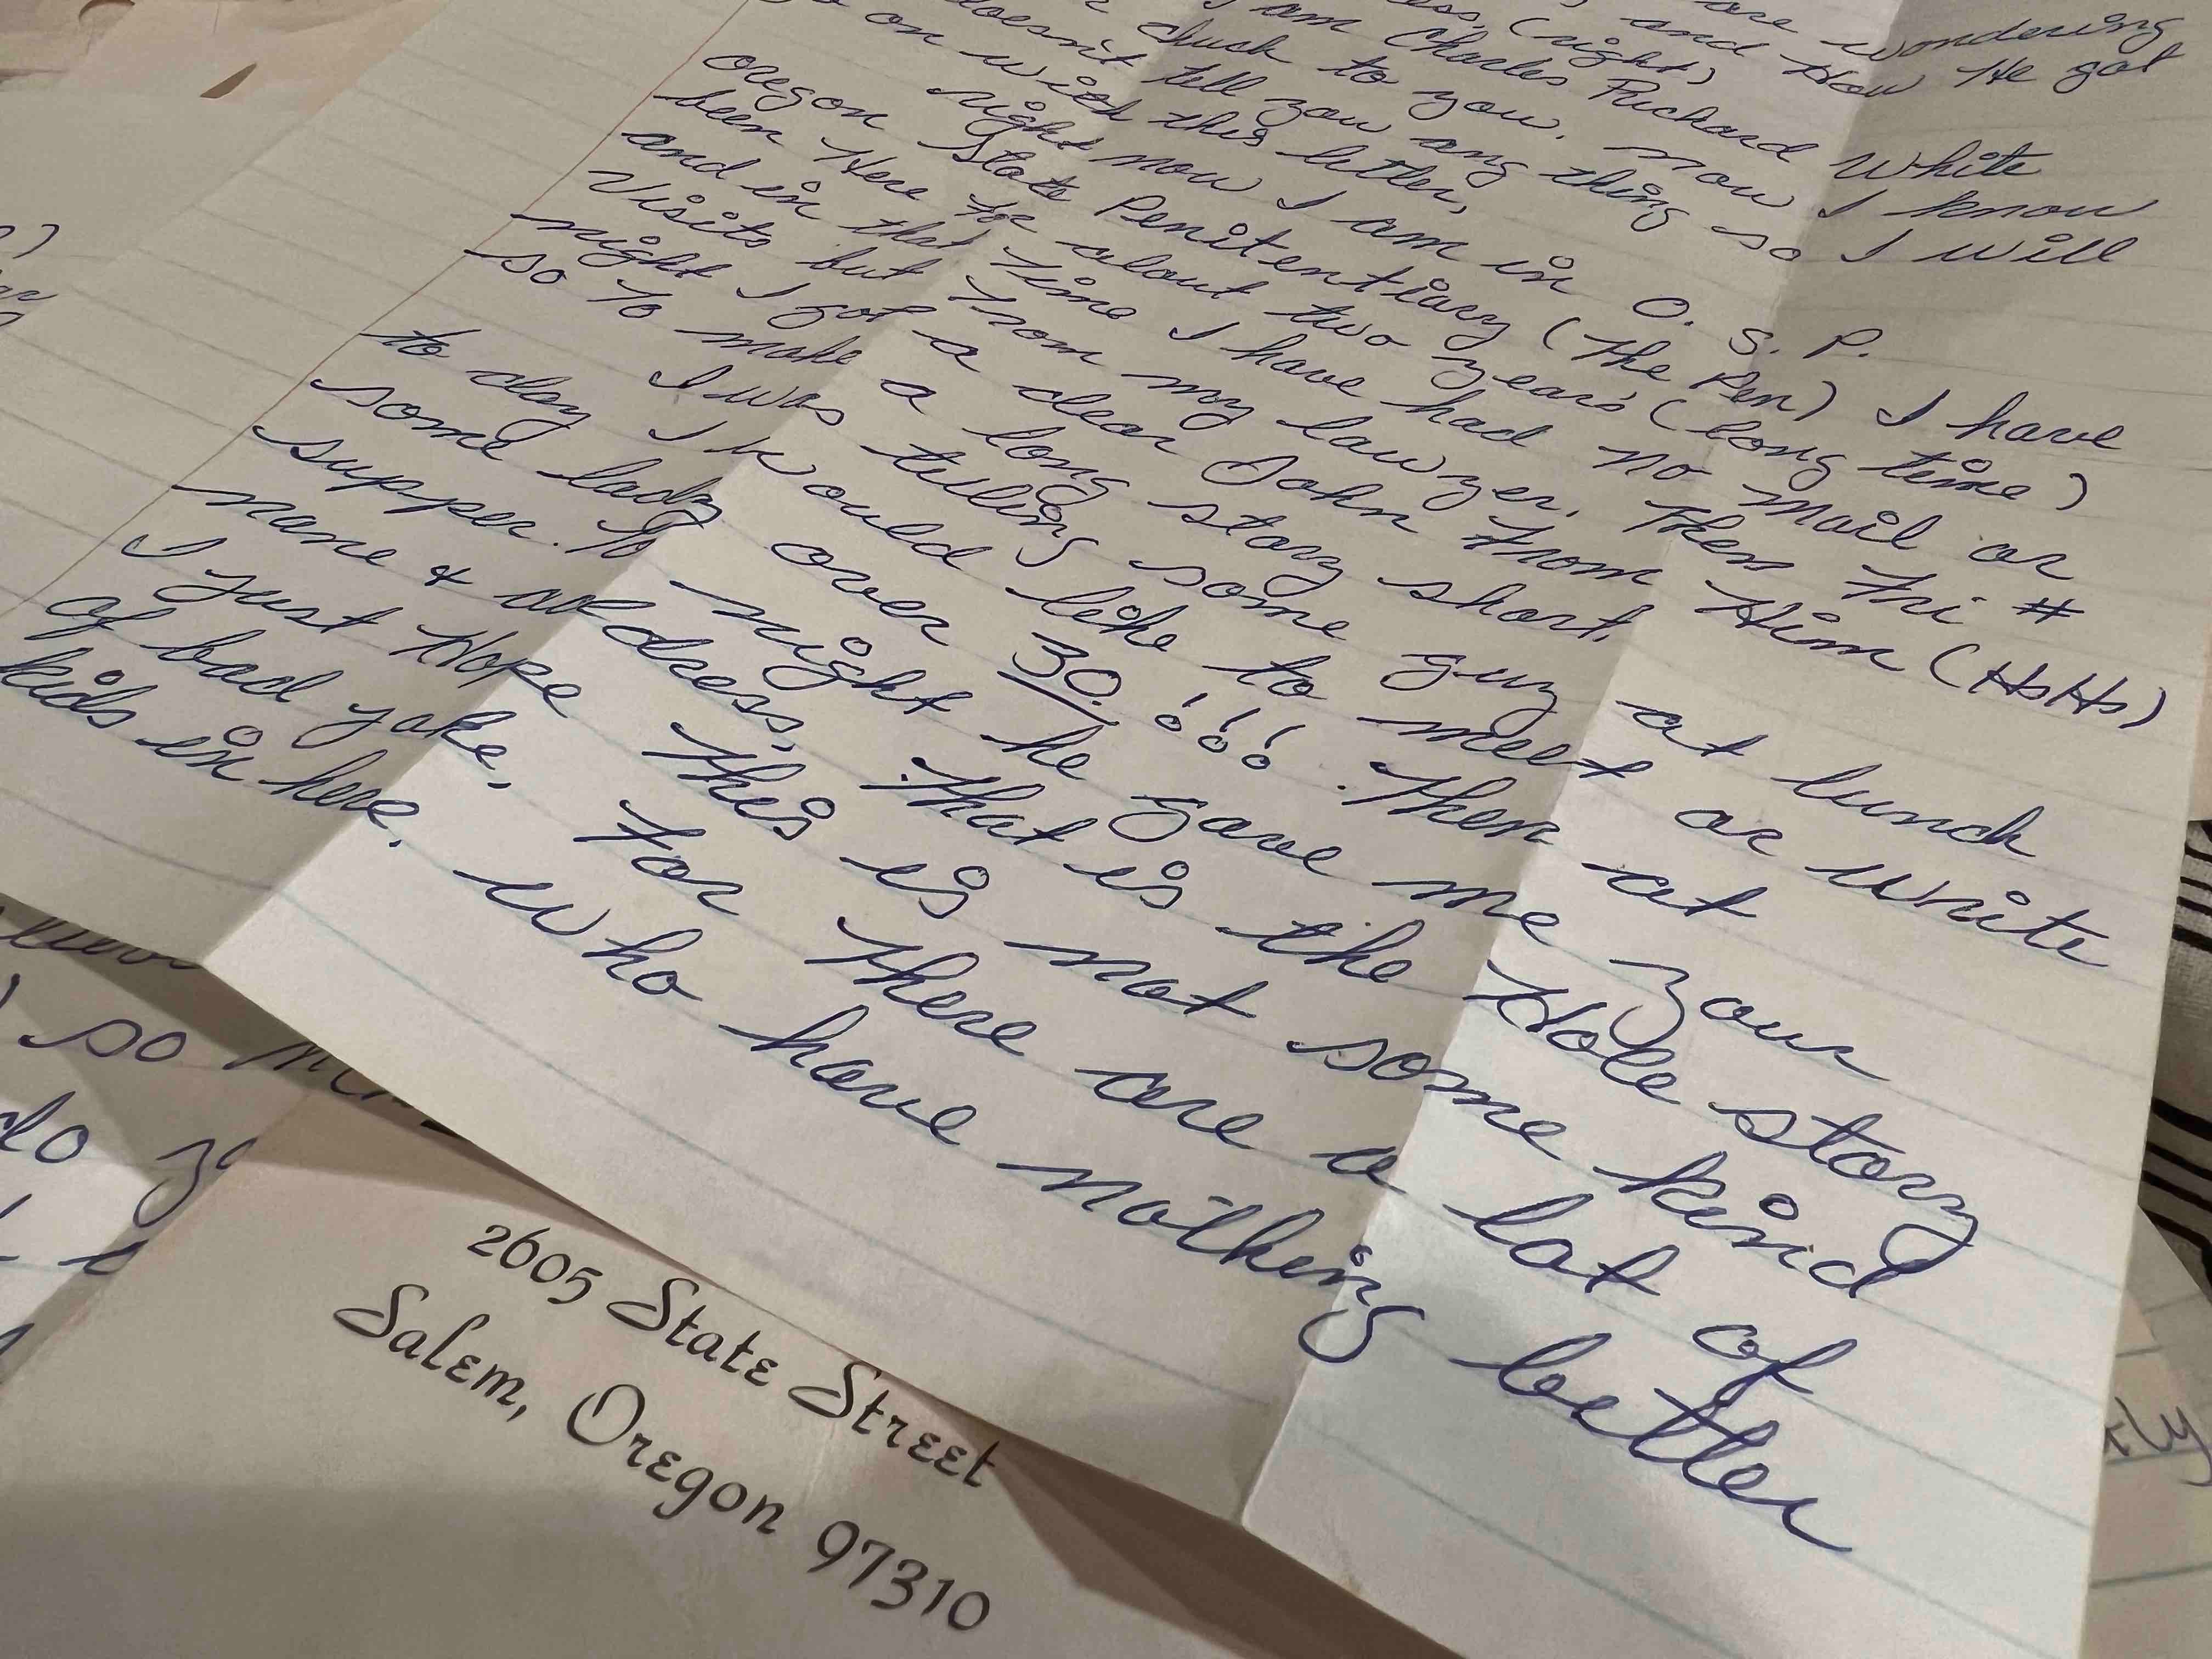 are wondering
ess, (right) and How He got
I am Charles Richard White
Chuck to you. now I know
doesn't tell you any thing so I will
go on with this letter,
right now I am in O. S. P.
Oregon State Penitentiary (The Pen) I have
been Here for about two years (long time)
and in that time I have had no mail or
Visits but from my lawyer. Then Fri #
night I got a dear John from Him (HsHs)
so to make a long story short.
I was telling some guy at lunch
to day I would like to meet or write
some lady over 30. !!! Then at
supper. To night he gave me your
name & address. That is the Hole story
I just Hope This is not some kind
of bad yoke, For There are a lot of
kids in here. who have nothing better
so
do
2605 State Street
Salem, Oregon 97310